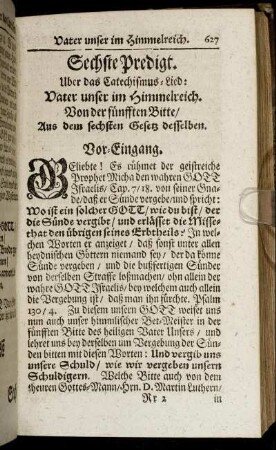 Vater unser im Himmelreich. 627
Sechste Predigt.
Uber das Catechismus-Lied:
Vater unser im Himmelreich.
Von der fünfften Bitte/
Aus dem sechsten Gesetz desselben.
Vor-Eingang.
GEliebte! Es rühmet der geistreiche
Prophet Micha den wahren GOTT
Israelis/ Cap. 7/18. von seiner Gna-
de/ daß er Sünde vergebe/ und spricht:
Wo ist ein solcher GOTT/ wie du bist/ der
die Sünde vergibt/ und erlässet die Misse-
that den übrigen seines Erbtheils? In wel-
chen Worten er anzeiget/ daß sonst unter allen
heydnischen Göttern niemand sey/ der da könne
Sünde vergeben/ und die bußfertigen Sünder
von derselben Straffe loßmachen/ ohn allein der
wahre GOTT Israelis/ bey welchem auch allein
die Vergebung ist/ daß man ihn fürchte. Psalm
130/4. Zu diesem unsern GOTT weiset uns
nun auch unser himmlischer Bet-Meister in der
fünfften Bitte des heiligen Vater Unsers/ und
lehret uns bey derselben um Vergebung der Sün-
den bitten mit diesen Worten: Und vergib uns
unsere Schuld/ wie wir vergeben unsern
Schuldigern. Welche Bitte auch von dem
theuren Gottes-Mann/ Hrn. D. Martin Luthern/
Rr 2 in